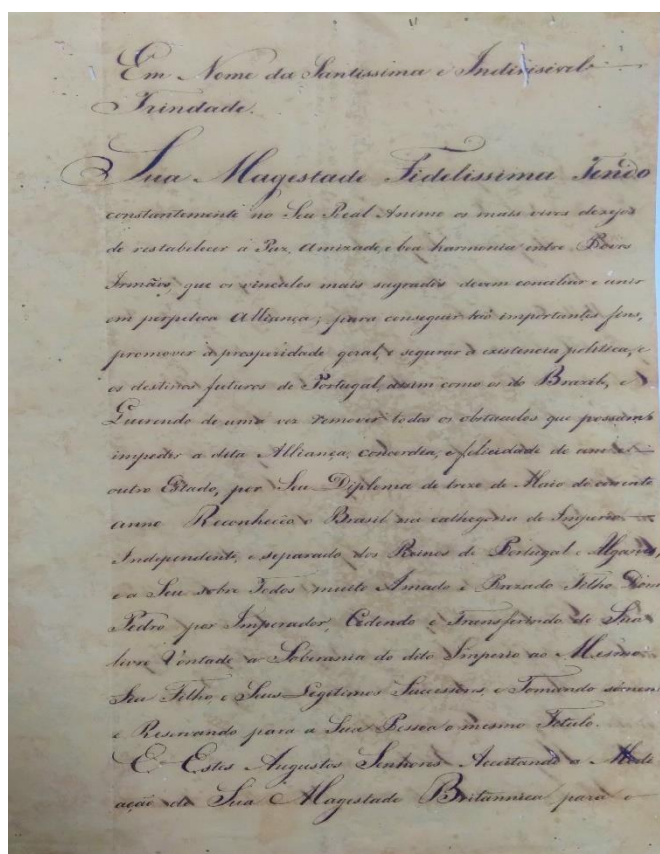 Em Nome da Santissima e Indivisivel
Trindade.
Sua Magestade Fidelissima Tendo
constantemente no Seu Real Animo os mais vivos dezejos
de restabelecer a Paz, Amizade, e boa harmonia entre Povos
Irmãos, que os vinculos mais sagrados devem conciliar e unir
em perpetua Alliança; para conseguir tão importantes fins,
promover a prosperidade geral, e segurar a existencia politica, e
os destinos futuros de Portugal, assim como os do Brazil, e
Querendo de uma vez remover todos os obstaculos que possam
impedir a dita Alliança, concordia, e felicidade de um e
outro Estado, por Seu Diploma de treze de Maio do corrente
anno Reconheceo o Brasil na cathegoria de Imperio
Independente, e separado dos Reinos de Portugal e Algarves,
e a Seu sobre Todos muito Amado e Prezado Filho Dom
Pedro por Imperador, Cedendo e Transferindo de Sua
livre Vontade a Soberania do dito Imperio ao Mesmo
Seu Filho e Seus Legitimos Successores, e Tomando somen
e Reservando para a Sua Pessoa o mesmo Titulo.
E Estes Augustos Senhores Acceitando a Medi
ação de Sua Magestade Britannica para o